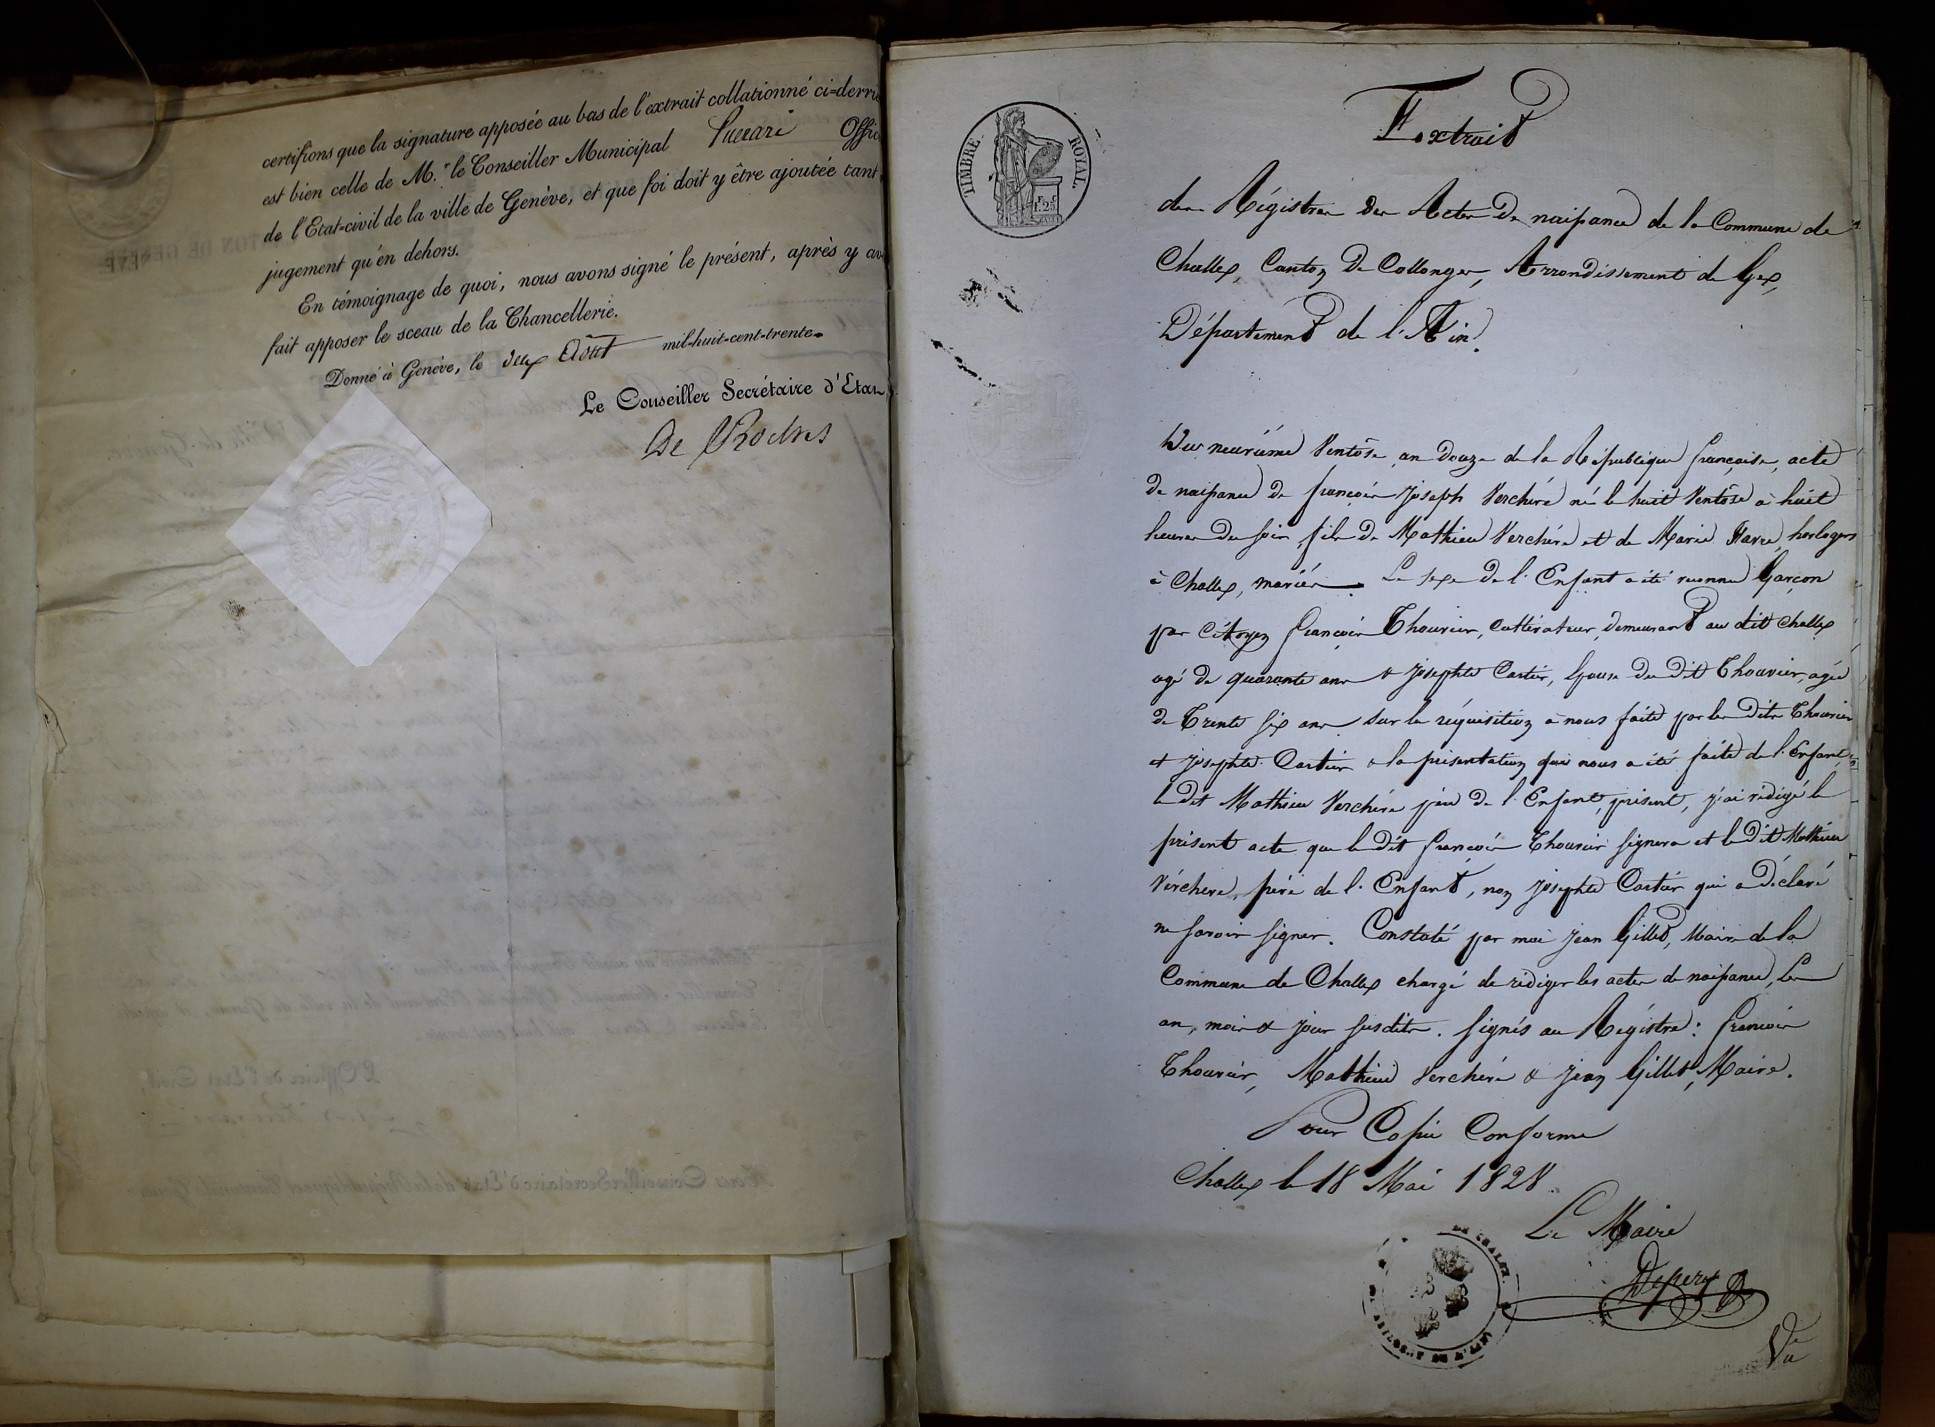 certifions que la signature apposée au bas de l'extrait collationné ci-derri
est bien celle de M.r le Conseiller Municipal Offici
de l'Etat-civil de la ville de Genève, et que foi doit y être ajoutée tant
jugement qu'en dehors.
En témoignage de quoi, nous avons signé le présent, après y av
fait apposer le sceau de la Chancellerie.
Donné à Genève, le deux Août mil-huit-cent-trente-
Le Conseiller Secrétaire d'Etat
De Roches
TIMBRE ROYAL
Extrait
des Régistres des Actes de naissance de la Commune de
Challex, Canton de Collonges, Arrondissement de Gex,
Département de l'Ain.
Du neuvième Ventôse an douze de la République française, acte
de naissance de françois Joseph Verchère né le huit Ventôse à huit
heures du soir, fils de Mathieu Verchère et de Marie Favre, horlogers
à Challex, mariés. Le sexe de l'Enfant a été reconnu Garçon
par Citoyen françois Thouvier, Cultivateur, demeurant au dit Challex
agé de quarante ans & Josephte Cartier, Epouse du dit Thouvier, agée
de Trente six ans sur la réquisition à nous faite par les dits Thouvier
et Josephte Cartier & la présentation qui nous a été faite de l'Enfant,
le dit Mathieu Verchère père de l'Enfant, présent, j'ai rédigé le
présent acte que le dit françois Thouvier signera et le dit Mathieu
Verchere, père de l'Enfant, non Josephte Cartier qui a déclaré
ne savoir signer. Constaté par moi Jean Gillet, Maire de la
Commune de Challex chargé de rédiger les actes de naissance, les
an, mois & jour susdits. Signés au Régistre: francois
Thouvier, Mathieu Verchère & Jean Gillet, Maire.
Pour Copie Conforme
Challex le 18 Mai 1828.
Le Maire
Depery
DE CHALEX
Vu